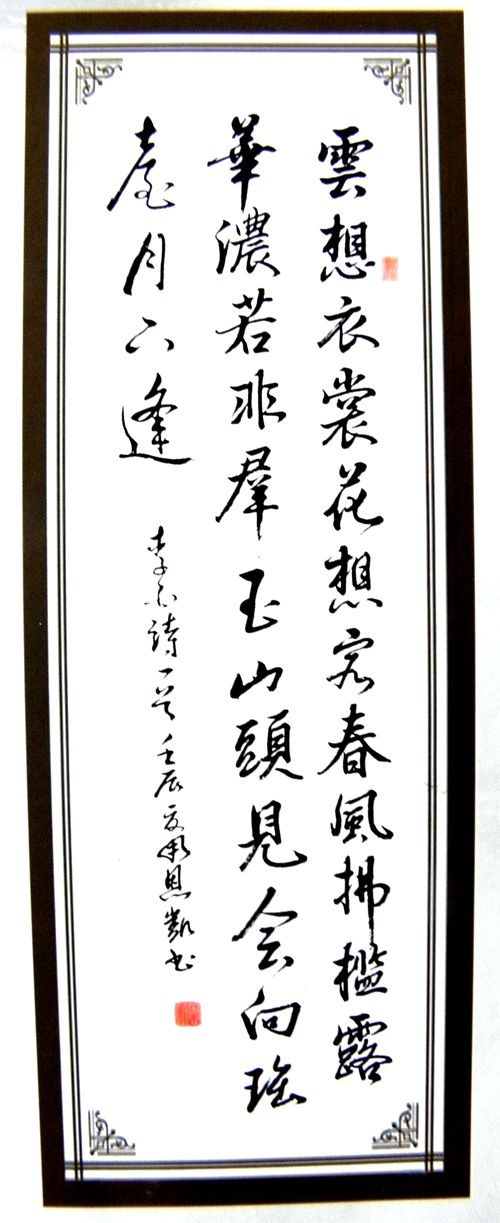 雲想衣裳花想容春風拂檻露
華濃若非羣玉山頭見会向瑶
臺月下逢
李白詩一首壬辰夏恩凱书